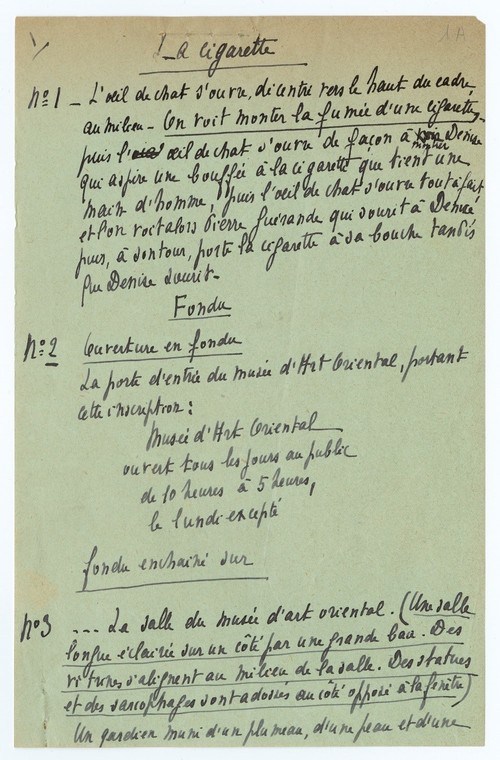 1A
La cigarette
N:o 1 - L'œil de chat s'ouvre, décentré vers le haut du cadre,
au milieu - On voit monter la fumée d'une cigarette,
puis l'œil de chat s'ouvre de façon à montrer Denise
qui aspire une bouffée à la cigarette que tient une
main d'homme, puis l'œil de chat s'ouvre tout à fait
et l'on voit alors Pierre Guérande qui sourit à Denise
puis, à son tour, porte la cigarette à sa bouche tandis
que Denise sourit.
Fondu
N:o 2 Ouverture en fondu
La porte d'entrée du musée d'Art Oriental, portant
cette inscription :
Musée d'Art Oriental
ouvert tous les jours au public
de 10 heures à 5 heures,
le lundi excepté
fondu enchaîné sur
N:o 3 ... La salle du musée d'art oriental. (Une salle
longue éclairée sur un côté par une grande baie. Des
vitrines s'alignent au milieu de la salle. Des statues
et des sarcophages sont adossés au côté opposé à la fenêtre)
Un gardien muni d'un plumeau, d'une peau et d'une